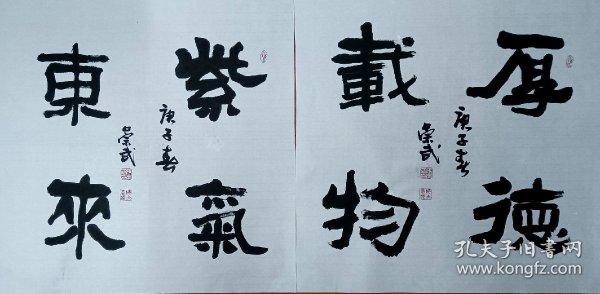 厚德
載物
庚子春
榮武
紫氣
東來
庚子春
榮武
孔夫子旧书网
www.kongfz.com